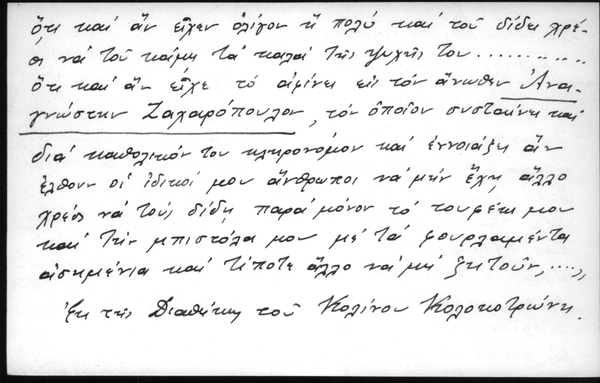 ὅτι καί ἄν εἶχεν ὀλίγον ἤ πολύ καί τοῦ δίδει χρέ-
ος νά τοῦ κάμῃ τά καλά τῆς ψυχῆς του ............
ὅτι καί ἄν εἶχε τό ἀφίνει εἰς τόν ἄνωθεν Ἀνα-
γνώστην Ζαχαρόπουλον, τόν ὁποῖον συσταίνει καί
διά καθολικόν του κληρονόμον καί ἐννοιάζῃ ἄν
ἔλθουν οἱ ἰδικοί μου ἄνθρωποι νά μήν ἔχῃ ἄλλο
χρέος νά τούς δίδῃ παρά μόνον τό τουφέκι μου
καί τήν μπιστόλα μου μέ τά φουρλαμέντα
ἀσημένια καί τίποτε ἄλλο νά μή ζητοῦν,....,,
Ἐκ τῆς Διαθήκης τοῦ Κολίνου Κολοκοτρώνη.